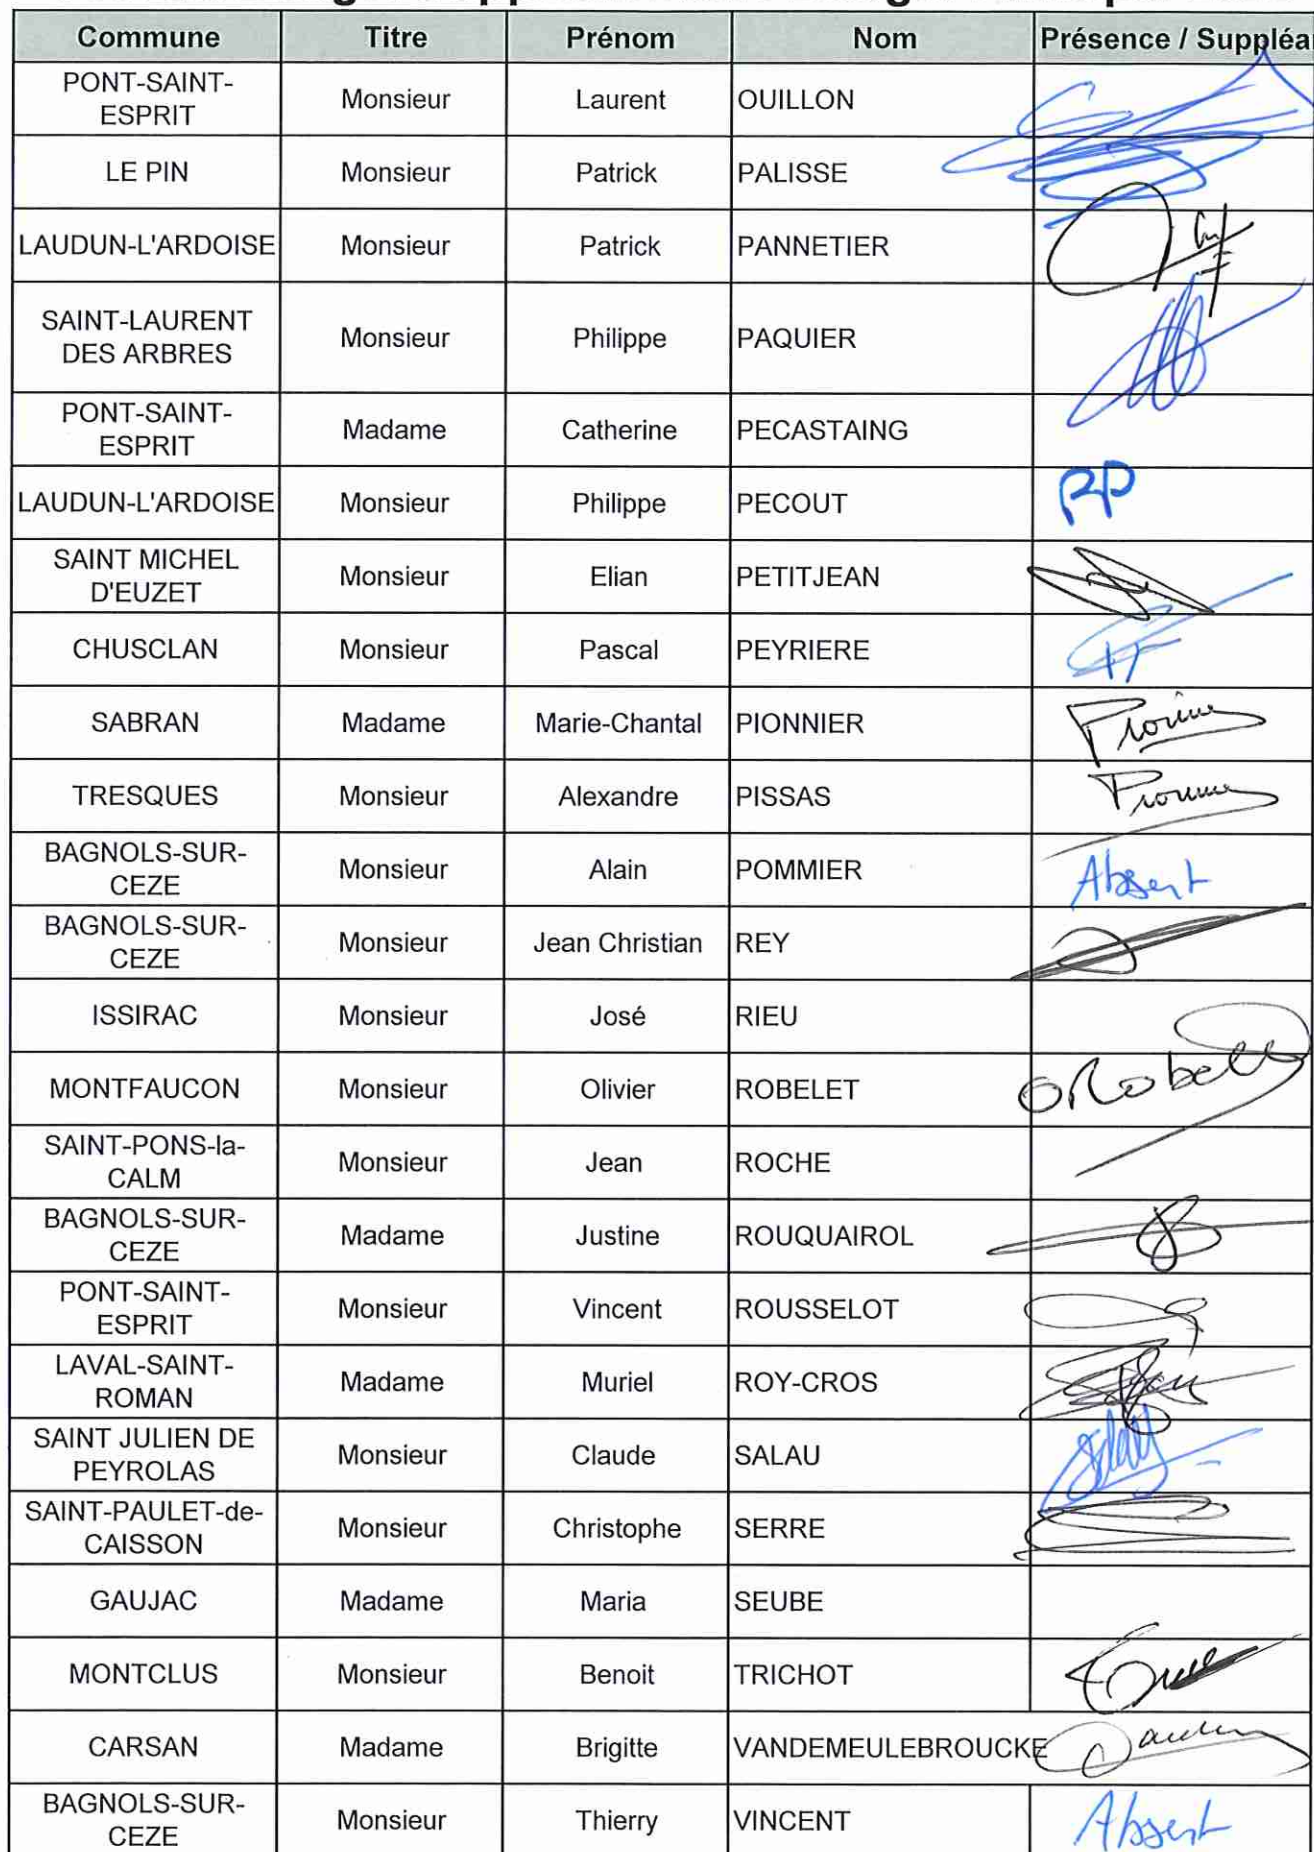 Commune Titre Prénom Nom Présence / Suppléa
PONT-SAINT-
ESPRIT Monsieur Laurent OUILLON
LE PIN Monsieur Patrick PALISSE
LAUDUN-L'ARDOISE Monsieur Patrick PANNETIER
SAINT-LAURENT
DES ARBRES Monsieur Philippe PAQUIER
PONT-SAINT-
ESPRIT Madame Catherine PECASTAING
LAUDUN-L'ARDOISE Monsieur Philippe PECOUT PP
SAINT MICHEL
D'EUZET Monsieur Elian PETITJEAN
CHUSCLAN Monsieur Pascal PEYRIERE
SABRAN Madame Marie-Chantal PIONNIER
TRESQUES Monsieur Alexandre PISSAS
BAGNOLS-SUR-
CEZE Monsieur Alain POMMIER Absent
BAGNOLS-SUR-
CEZE Monsieur Jean Christian REY
ISSIRAC Monsieur José RIEU
MONTFAUCON Monsieur Olivier ROBELET
SAINT-PONS-la-
CALM Monsieur Jean ROCHE
BAGNOLS-SUR-
CEZE Madame Justine ROUQUAIROL
PONT-SAINT-
ESPRIT Monsieur Vincent ROUSSELOT
LAVAL-SAINT-
ROMAN Madame Muriel ROY-CROS
SAINT JULIEN DE
PEYROLAS Monsieur Claude SALAU
SAINT-PAULET-de-
CAISSON Monsieur Christophe SERRE
GAUJAC Madame Maria SEUBE
MONTCLUS Monsieur Benoit TRICHOT
CARSAN Madame Brigitte VANDEMEULEBROUCKE
BAGNOLS-SUR-
CEZE Monsieur Thierry VINCENT Absent